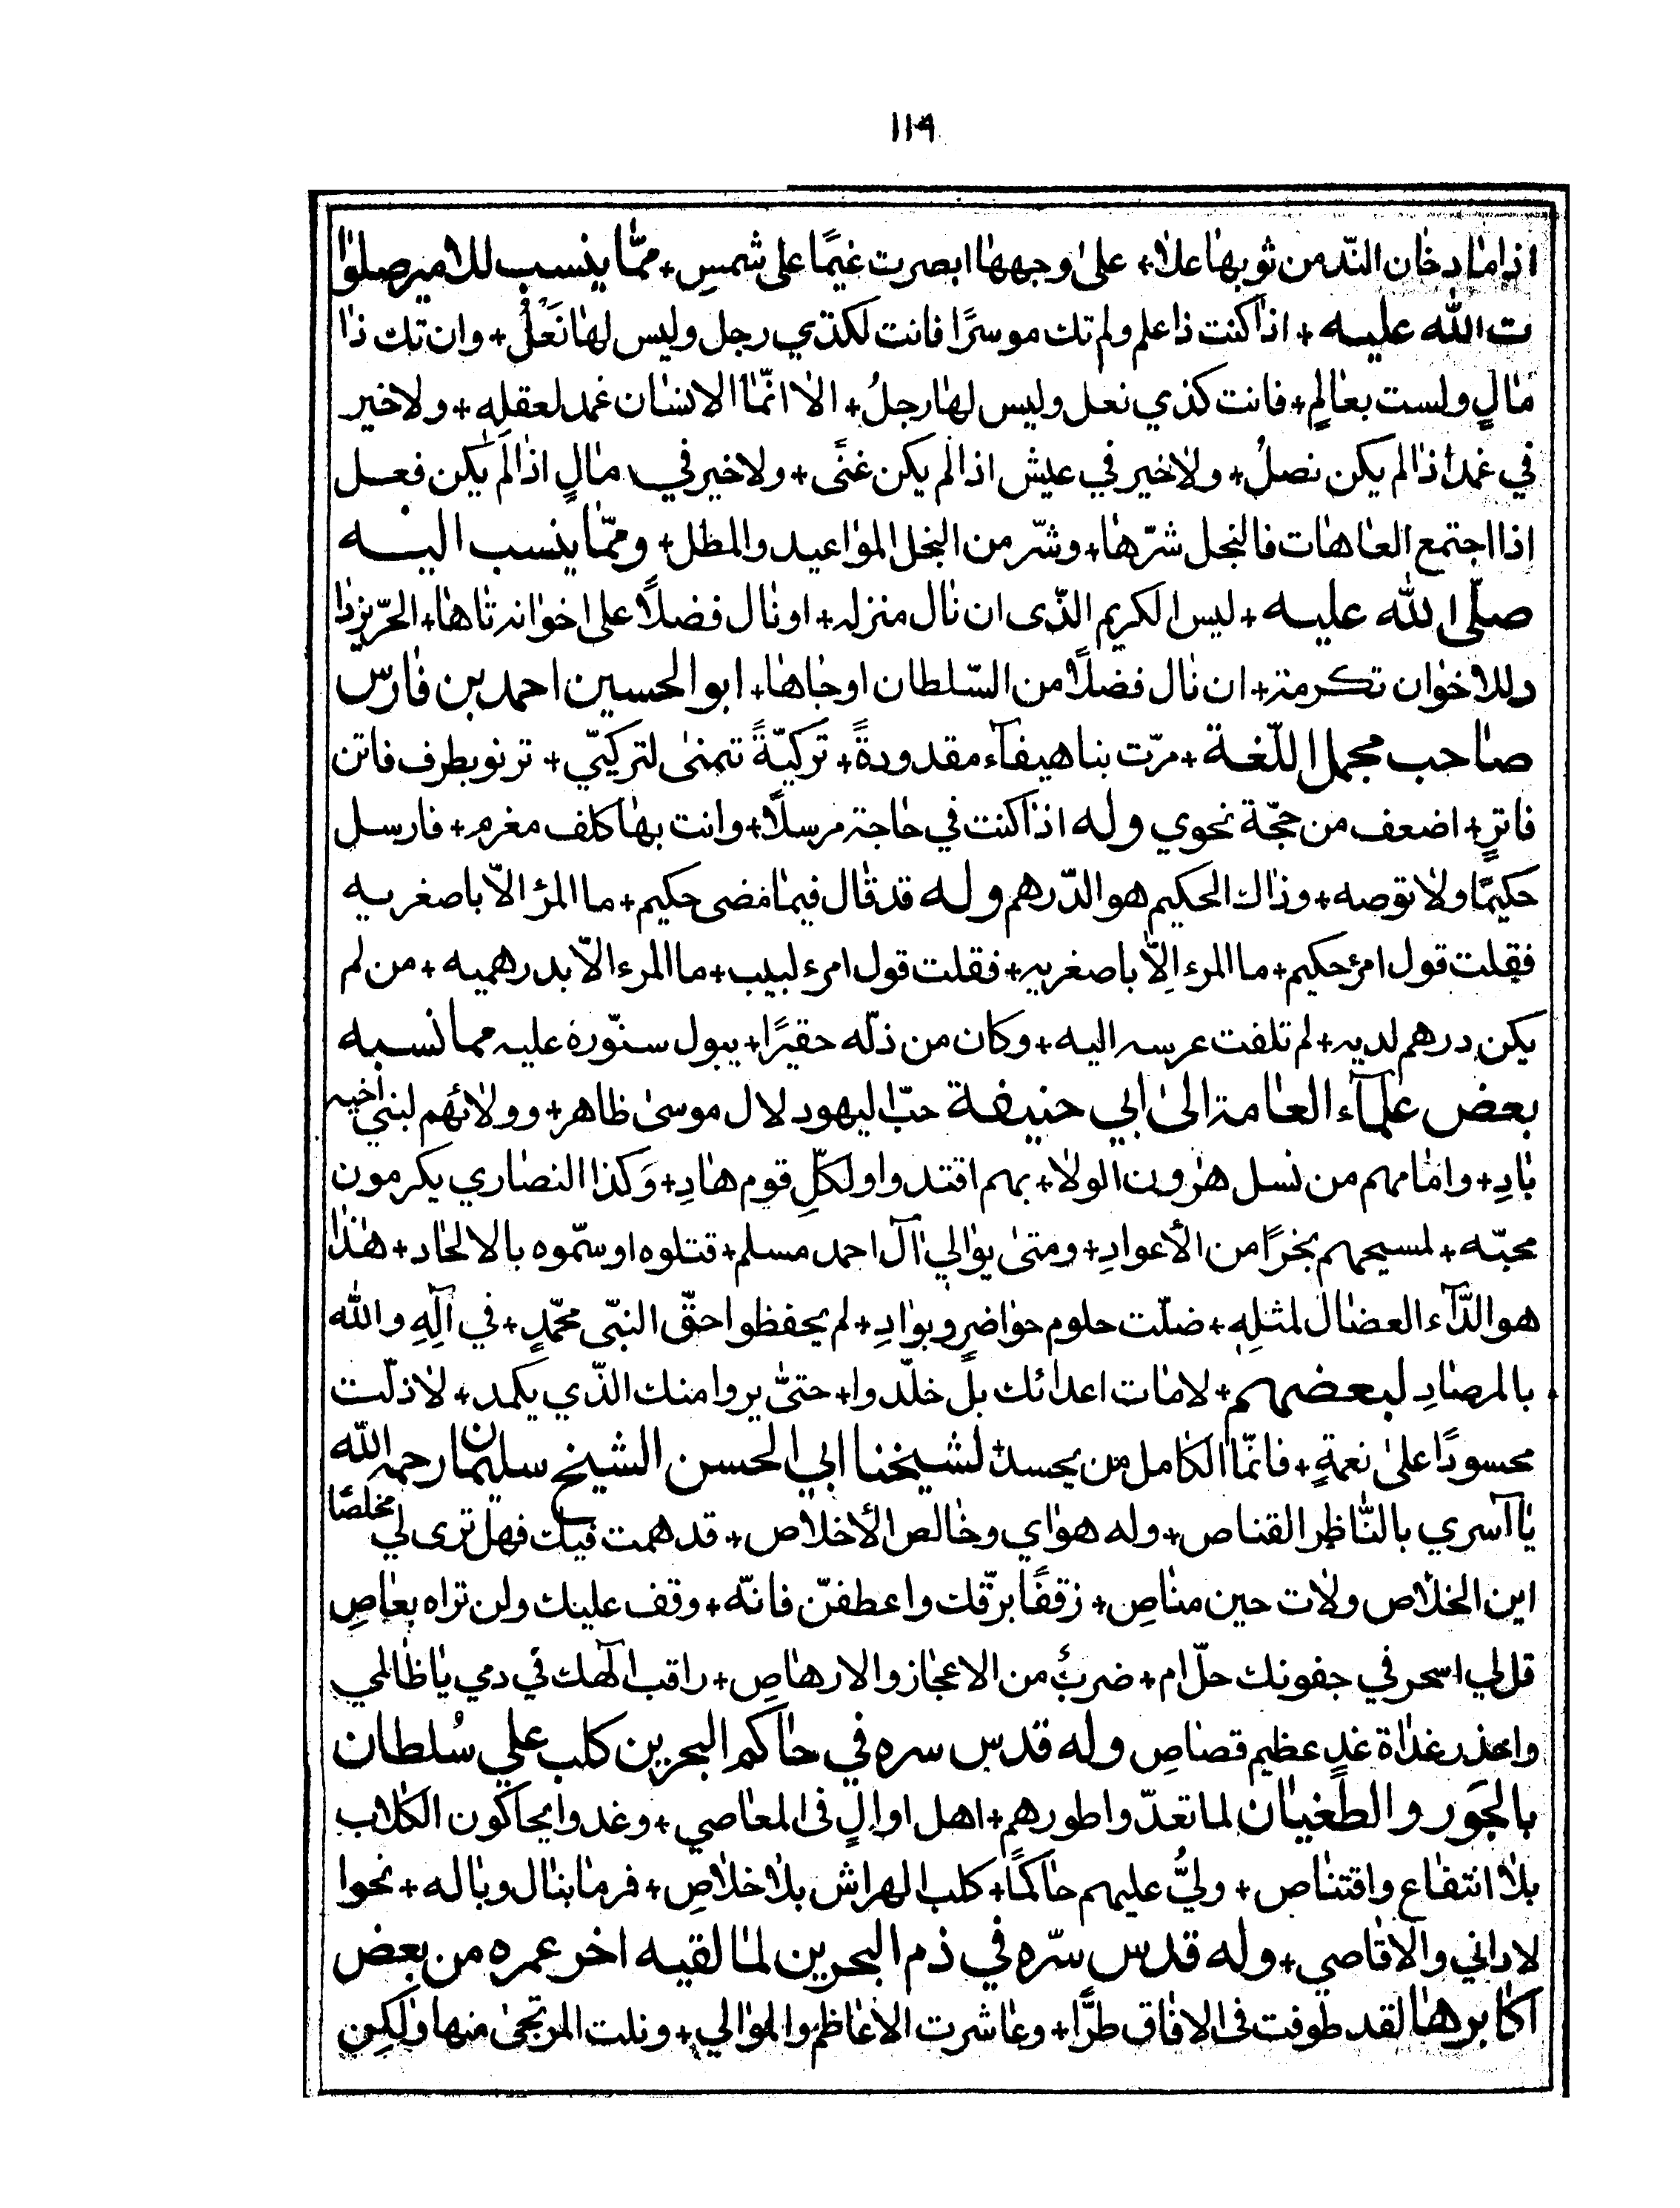 ١١٩
اذا ما دخان الندّ من ثوبها علا + على وجهها ابصرت غيمًا على شمسِ + ممّا ينسب للامير صلوا
ت الله عليه + اذا كنت ذا علم ولم تك موسرًا فانت لكذي رجل وليس لها نَعْلُ + وان تك ذا
مالٍ ولست بعالمٍ + فانت كذي نعل وليس لها رجلُ + الا انّما الانسان غمد لعقلِه + ولا خير
في غمد اذا لم يكن نصلُ + ولا خير في عيش اذا لم يكن غنًى + ولا خير في مالٍ اذا لَم يكن فعل
اذا اجتمع العاهات فالبخل شرّها + وشرّ من البخل المواعيد والمطل + وممّا ينسب اليه
صلّى الله عليه + ليس الكريم الذّى ان نال منزله + او نال فضلًا على اخوانه تاها + الحرّ يزدا
د للاخوان تكرمة + ان نال فضلًا من السّلطان او جاها + ابو الحسين احمد بن فارس
صاحب مجمل اللّغة + مرّت بنا هيفآء مقدودةً + تركيّةً تنمى لتركيّي + ترنو بطرف فاتن
فاترٍ + اضعف من حجّة نحوي وله اذا كنت في حاجة مرسلًا + وانت بها كلف مغرم + فارسل
حكيمًا ولا توصه + وذاك الحكيم هو الدّرهم وله قد قال فيما مضى حكيم + ما المرؤ الّا باصغريه
فقلت قول امرئ حكيم + ما المرء الّا باصغريه + فقلت قول امرء لبيب + ما المرء الّا بدرهميه + من لم
يكن درهم لديه + لم تلفت عرسه اليه + وكان من ذلّه حقيرًا + يبول سنّوره عليه مما نسبه
بعض علمآء العامة الى ابي حنيفة حبّ اليهود لال موسى ظاهر + وولائهم لبني اخيه
بادِ + وامامهم من نسل هرون الولا + بهم اقتدوا ولكلّ قوم هادِ + وكذا النصاري يكرمون
محبّه + لمسيحهم نجرًا من الأعوادِ + ومتى يوالي آل احمد مسلم + قتلوه او سمّوه بالالحاد + هذا
هو الدّآء العضال لمثلِهِ + ضلّت حلوم حواضرٍ وبوادِ + لم يحفظوا حقّ النبّى محمّدٍ + في آلِهِ والله
بالمرصادِ لبعضهم + لا مات اعدائك بل خلّدوا + حتىّ يروا منك الذّي يكمد + لا زلت
محسودًا على نعمةٍ + فانّما الكامل من يحسد لشيخنا ابي الحسن الشيخ سليمان رحمه الله
يا آسري بالنّاظر القناص + وله هواي وخالص الأخلاص + قد همت فيك فهل ترى لي مخلصًا
اين الخلاص ولات حين مناصِ + رفقًا برقّك واعطفنّ فانّه + وقف عليك ولن تراه بعاصِ
قل لي اسحر في جفونك حلّ ام + ضربٌ من الاعجاز والارهاصِ + راقب الٓهك في دمي يا ظالمي
واحذر غداة غدٍ عظيم قصاصِ وله قدس سره في حاكم البحرين كلب علي سُلطان
بالجَور والطغيان لما تعدّوا طورهم + اهل اوالٍ فى المعاصي + وغدوا يحاكون الكلاب
بلا انتفاع واقتناص + وليُّ عليهم حاكمًا + كلب الهراش بلا خلاصِ + فرما بنال وباله + نحوا
لاداني والاقاصي + وله قدس سّره في ذم البحرين لما لقيه اخر عمره من بعض
اكابرها لقد طوفت فى الافاق طرًّا + وعاشرت الأعاظم والموالي + ونلت المرتجى منها ولكن